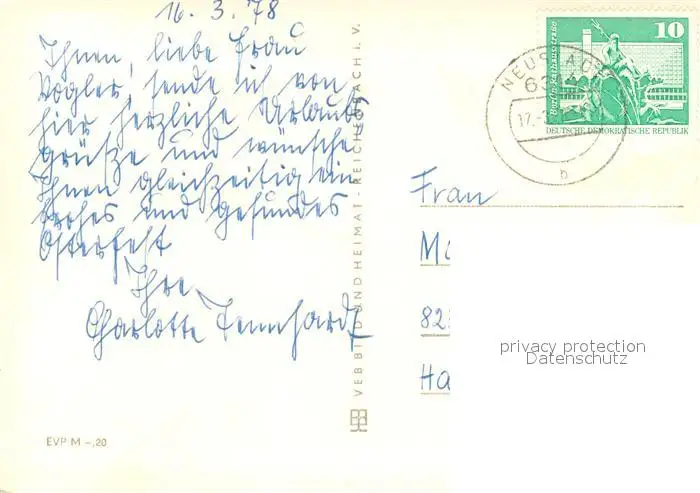 16. 3. 78
Ihnen, liebe Frau
Vogler, sende ich von
hier herzliche Urlaubs
grüße und wünsche
Ihnen gleichzeitig ein
frohes und gesundes
Osterfest
Ihre
Charlotte Tennhardt
EVP M -,20
VEB BILD UND HEIMAT · REICHENBACH I. V.
10
Berlin, Rathausstraße
DEUTSCHE DEMOKRATISCHE REPUBLIK
NEUSTADT
17.
b
Frau
M
82
Ha
privacy protection
Datenschutz